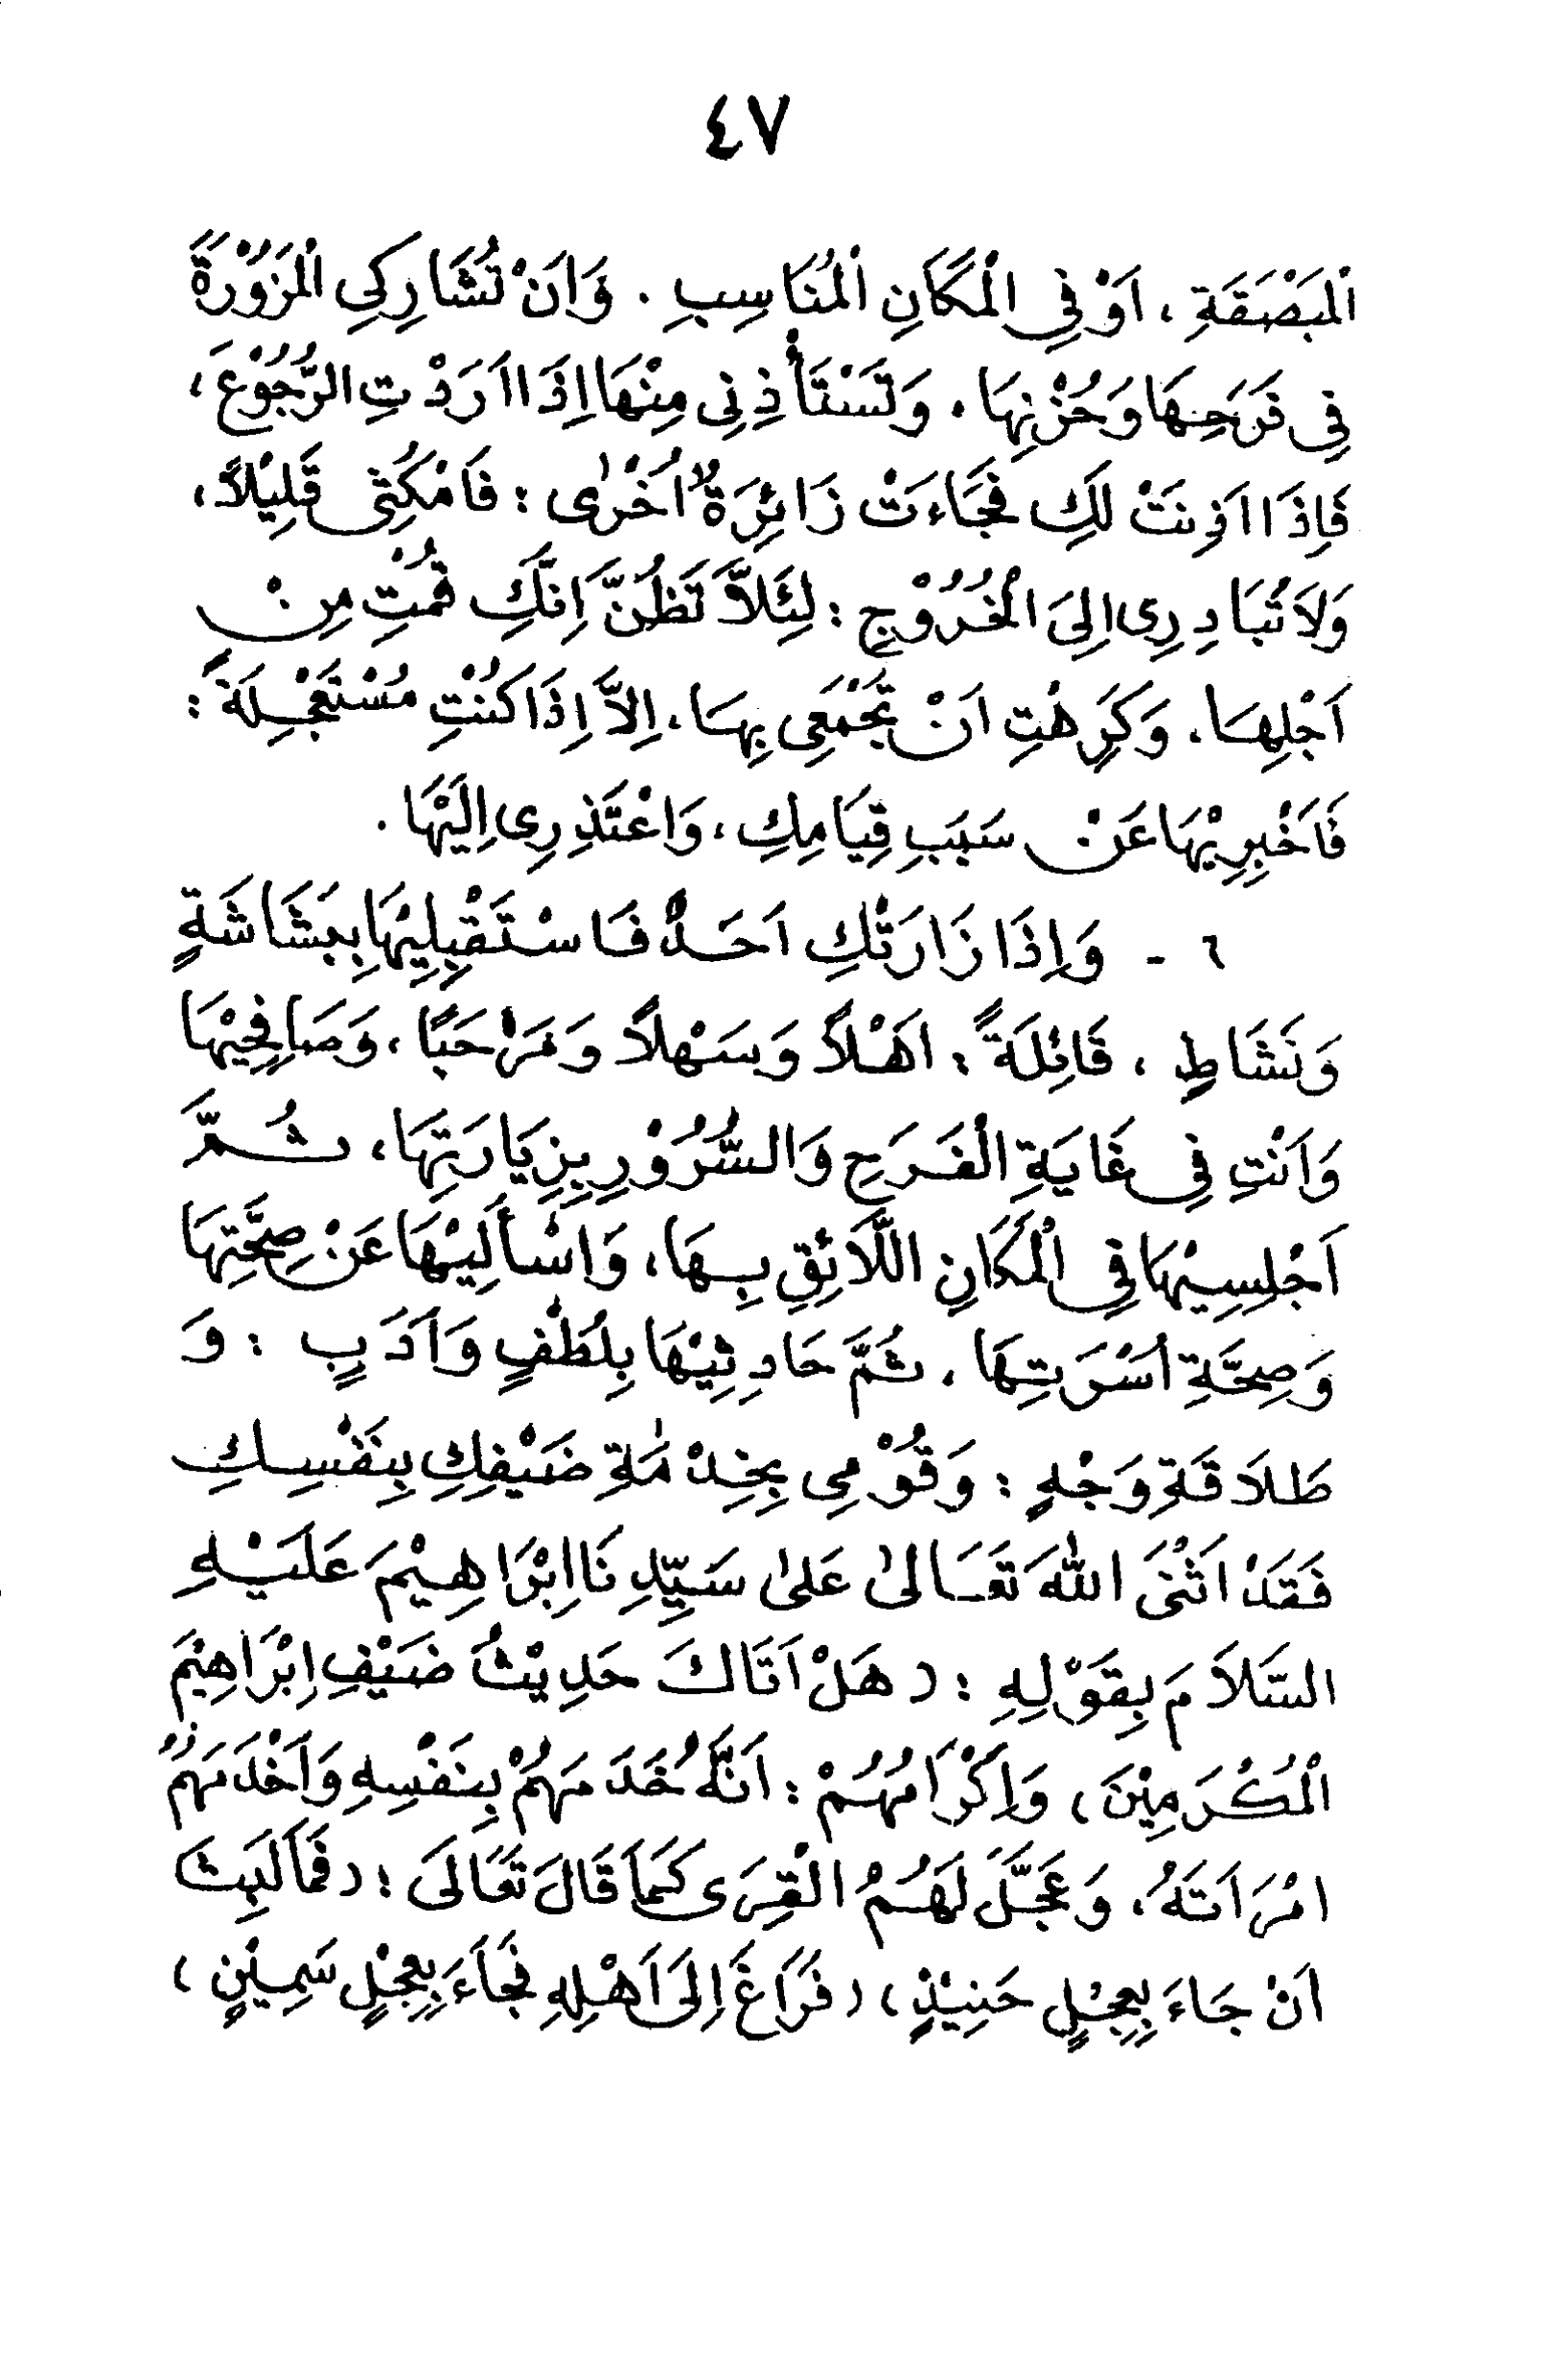 ٤٧
اَلْمَبْصَقَةِ ، اَوْ فِي الْمَكَانِ الْمُنَاسِبِ . وَاَنْ تُشَارِكِى الْمَزُوْرَةَ
فِى فَرَحِهَا وَحُزْنِهَا . وَتَسْتَأْذِنِى مِنْهَا اِذَا اَرَدْتِ الرُّجُوْعَ ،
فَاِذَا اَذِنَتْ لَكِ فَجَاءَتْ زَائِرَةٌ اُخْرٰى : فَامْكُثِى قَلِيْلاً ،
وَلاَ تُبَادِرِى اِلَى الْخُرُوْجِ : لِئَلاَّ تَظُنَّ اِنَّكِ قُمْتِ مِنْ
اَجْلِهَا . وَكَرِهْتِ اَنْ تَجْمَعِى بِهَا ، اِلاَّ اِذَا كُنْتِ مُسْتَعْجِلَةً :
فَاَخْبِرِيْهَا عَنْ سَبَبِ قِيَامِكِ ، وَاعْتَذِرِى اِلَيْهَا .
٦ - وَاِذَا زَارَتْكِ اَحَدٌ فَاسْتَقْبِلِيْهَا بِبَشَاشَةٍ
وَنَشَاطٍ ، قَائِلَةً : اَهْلاً وَسَهْلاً وَمَرْحَبًا ، وَصَافِحِيْهَا
وَاَنْتِ فِى غَايَةِ الْفَرَحِ وَالسُّرُوْرِ بِزِيَارَتِهَا ، ثُمَّ
اَجْلِسِيْهَا فِى الْمَكَانِ اللَّائِقِ بِهَا ، وَاسْأَلِيْهَا عَنْ صِحَّتِهَا
وَصِحَّةِ اُسْرَتِهَا . ثُمَّ حَادِثِيْهَا بِلُطْفٍ وَاَدَبٍ : وَ
طَلاَقَةِ وَجْهٍ : وَقُوْمِى بِخِدْمَةِ ضَيْفِكِ بِنَفْسِكِ
فَقَدْ اَثْنَى اللهُ تَعَالىٰ عَلىٰ سَيِّدِنَا اِبْرَاهِيْمَ عَلَيْهِ
السَّلاَمَ بِقَوْلِهِ : ( هَلْ اَتَاكَ حَدِيْثُ ضَيْفِ اِبْرَاهِيْمَ
الْمُكْرَمِيْنَ ) وَاِكْرَامُهُمْ : اَنَّهُ خَدَمَهُمْ بِنَفْسِهِ وَاَخْدَمَهُمُ
امْرَاَتَهُ ، وَعَجَّلَ لَهُمُ الْقِرَى كَمَا قَالَ تَعَالَى : ( فَمَا لَبِثَ
اَنْ جَاءَ بِعِجْلٍ حَنِيْذٍ ) ( فَرَاغَ اِلَى اَهْلِهِ فَجَاءَ بِعِجْلٍ سَمِيْنٍ )